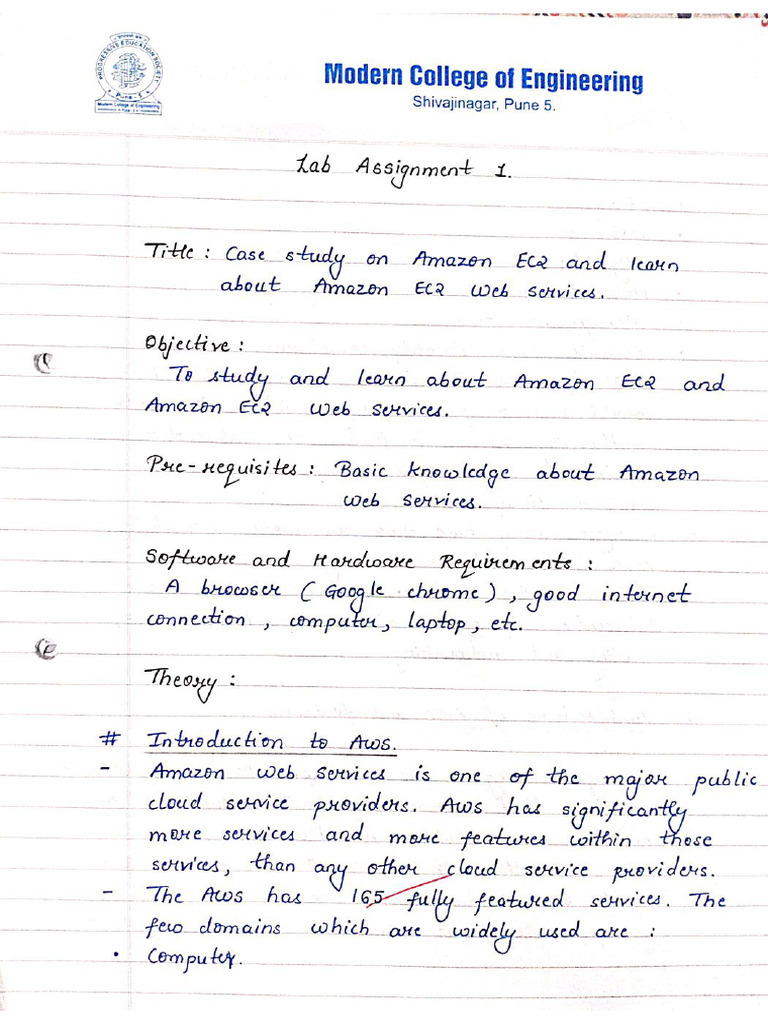 PROGRESSIVE EDUCATION SOCIETY
Pune - 5
Modern College of Engineering
Modern College of Engineering
Shivajinagar, Pune 5.
Lab Assignment 1.
Title : Case study on Amazon EC2 and learn
about Amazon EC2 Web Services.
Objective :
To study and learn about Amazon EC2 and
Amazon EC2 Web Services.
Pre-requisites : Basic knowledge about Amazon
Web Services.
Software and Hardware Requirements :
A browser ( Google chrome ) , good internet
connection , computer, laptop, etc.
Theory :
# Introduction to AWS.
- Amazon Web Services is one of the major public
cloud service providers. AWS has significantly
more services and more features within those
services, than any other cloud service providers.
- The AWS has 165 fully featured services. The
few domains which are widely used are :
• Computer.